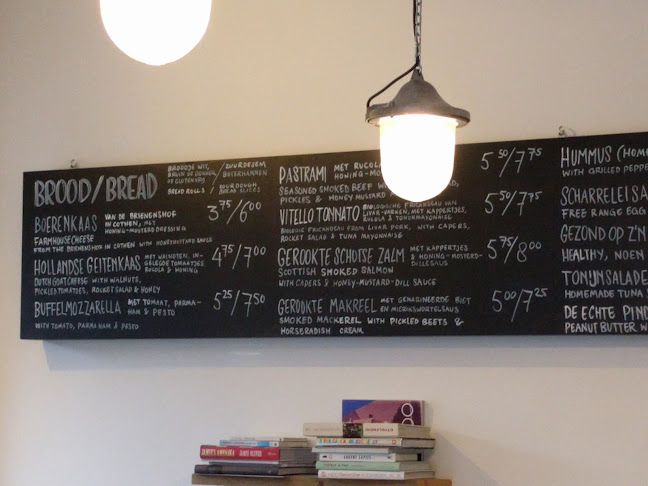 BROOD/BREAD
BROODJE WIT, / ZUURDESEM
BRUIN DE DONKER, BOTERHAMMEN
OF GLUTENVRIJ
BREAD ROLLS / SOURDOUGH BREAD SLICES
BOERENKAAS VAN DE BRIENENSHOF
IN COTHEN, MET
HONING-MOSTERDDRESSING
3 75/6 00
FARMHOUSE CHEESE
FROM THE BRIENENSHOF IN COTHEN WITH HONEYMUSTARD SAUCE
HOLLANDSE GEITENKAAS MET WALNOTEN, IN-
GELEGDE TOMAATJES
RUCOLA & HONING
4 75/7 00
DUTCH GOAT CHEESE WITH WALNUTS,
PICKLED TOMATOES, ROCKET SALAD & HONEY
BUFFELMOZZARELLA MET TOMAAT, PARMA-
HAM & PESTO
5 25/7 50
WITH TOMATO, PARMA HAM & PESTO
PASTRAMI MET RUCOLA
HONING-MO
5 50/7 75
SEASONED SMOKED BEEF W
PICKLES & HONEY MUSTARD
VITELLO TONNATO BIOLOGISCHE FRICANDEAU VAN
LIVAR-VARKEN, MET KAPPERTJES,
RUCOLA & TONIJNMAYONAISE
5 50/7 75
BIOLOGIC FRICANDEAU FROM LIVAR PORK, WITH CAPERS,
ROCKET SALAD & TUNA MAYONNAISE
GEROOKTE SCHOTSE ZALM MET KAPPERTJES
& HONING-MOSTERD-
DILLESAUS
5 75/8 00
SCOTTISH SMOKED SALMON
WITH CAPERS & HONEY-MUSTARD-DILL SAUCE
GEROOKTE MAKREEL MET GEMARINEERDE BIET
EN MIERIKSWORTELSAUS
5 00/7 25
SMOKED MACKEREL WITH PICKLED BEETS &
HORSERADISH CREAM
HUMMUS (HOM
WITH GRILLED PEPPE
SCHARRELEI SA
FREE RANGE EGG
GEZOND OP Z'N
HEALTHY, NOEN
TONIJNSALADE
HOMEMADE TUNA S
DE ECHTE PIND
PEANUT BUTTER W
JAMIE OLIVER